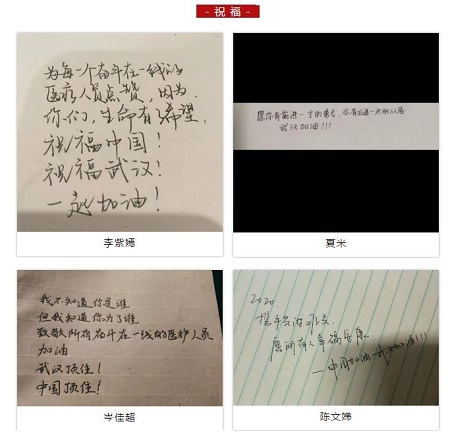 - 祝 福 -
为每一个奋斗在一线的
医疗人员点赞，因为
你们，生命有了希望
祝福中国！
祝福武汉！
一起加油！
李紫嫣
愿你有前进一寸的勇气，亦有后退一尺的从容
武汉加油！！！
夏米
我不知道你是谁
但我知道你为了谁
致敬所有奋斗在一线的医护人员
加油
武汉顶住！
中国顶住！
岑佳超
2020
愿所有人幸福安康
—中国加油 武汉加油！！！
陈文娣